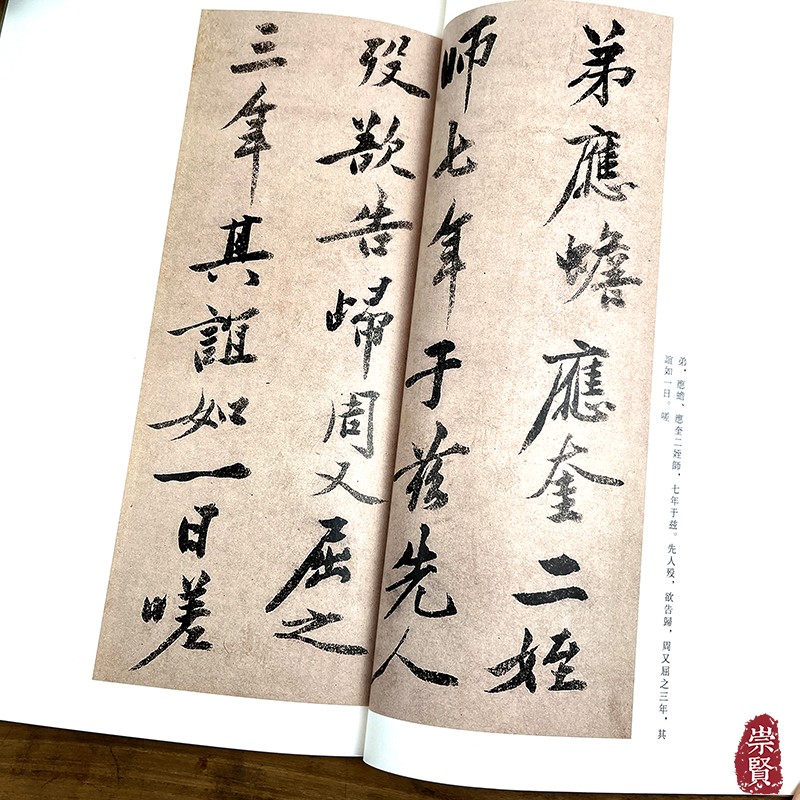 弟應蟾應奎二姪
師七年于茲先人
歿欲告歸周又屈之
三年其誼如一日嗟
弟，應蟾、應奎二姪師，七年于兹。先人歿，欲告歸，周又屈之三年，其
誼如一日。嗟
崇賢